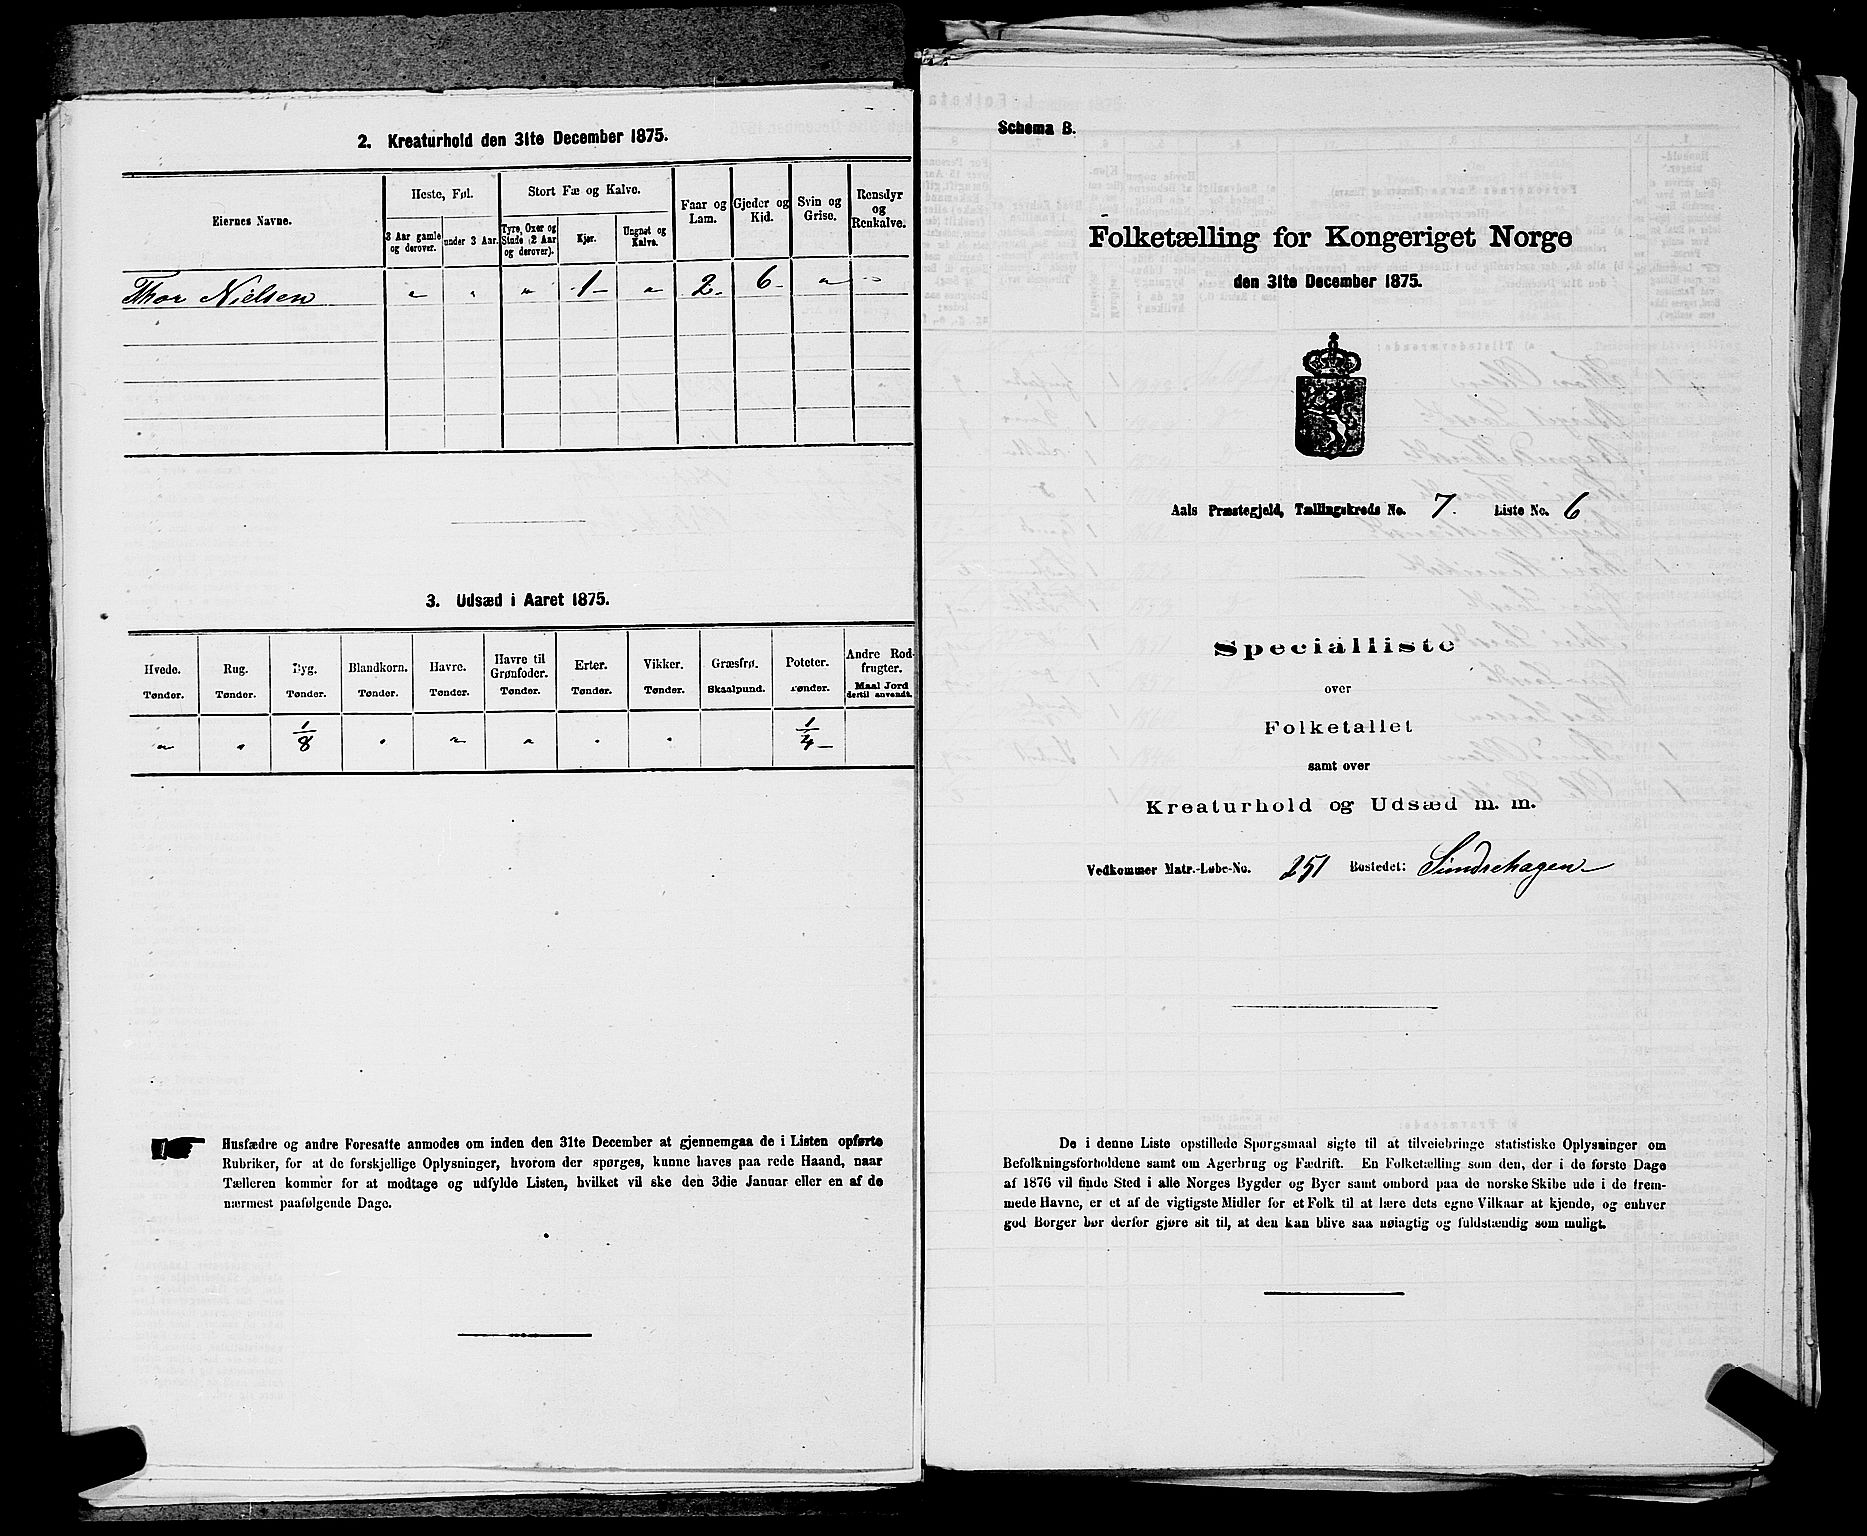 2. Kreaturhold den 31te December 1875.
Eiernes Navne.
Heste, Føl.
3 Aar gamle og derover.
under 3 Aar.
Stort Fæ og Kalve.
Tyre, Oxer og Stude (2 Aar og derover).
Kjør.
Ungnøt og Kalve.
Faar og Lam.
Gjeder og Kid.
Svin og Grise.
Rensdyr og Renkalve.
Thor Nielsen " " " 1 " 2 6 " "
3. Udsæd i Aaret 1875.
Hvede. Rug. Byg. Blandkorn. Havre. Havre til Grønfoder. Erter. Vikker. Græsfrø. Poteter. Andre Rodfrugter.
Tønder. Tønder. Tønder. Tønder. Tønder. Tønder. Tønder. Tønder. Skaalpund. Tønder. Maal Jord dertil anvendt.
" " 1/8 " " " " " 1/4
Husfædre og andre Foresatte anmodes om inden den 31te December at gjennemgaa de i Listen opførte
Rubriker, for at de forskjellige Oplysninger, hvorom der spørges, kunne haves paa rede Haand, naar
Tælleren kommer for at modtage og udfylde Listen, hvilket vil ske den 3die Januar eller en af de
nærmest paafølgende Dage.
Schema B.
Folketælling for Kongeriget Norge
den 31te December 1875.
Aals Præstegjeld, Tællingskreds No. 7. Liste No. 6
Specialliste
over
Folketallet
samt over
Kreaturhold og Udsæd m. m.
Vedkommer Matr.-Løbe-No. 251 Bostedet: Sundrehagen
De i denne Liste opstillede Spørgsmaal sigte til at tilveiebringe statistiske Oplysninger om
Befolkningsforholdene samt om Agerbrug og Fædrift. En Folketælling som den, der i de første Dage
af 1876 vil finde Sted i alle Norges Bygder og Byer samt ombord paa de norske Skibe ude i de frem-
mede Havne, er et af de vigtigste Midler for et Folk til at lære dets egne Vilkaar at kjende, og enhver
god Borger bør derfor gjøre sit til, at den kan blive saa nøiagtig og fuldstændig som muligt.